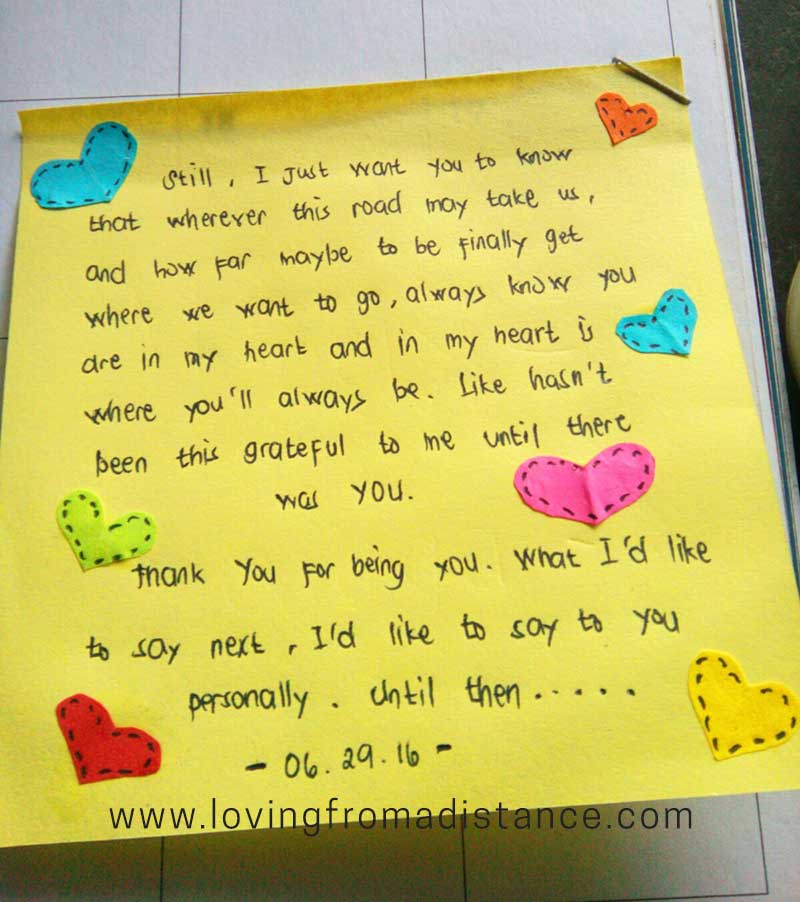 Still, I Just want you to know
that wherever this road may take us,
and how far maybe to be finally get
where we want to go, always know you
are in my heart and in my heart is
where you'll always be. Like hasn't
been this grateful to me until there
was you.
Thank You for being you. What I'd like
to say next, I'd like to say to you
personally. Until then.....
- 06.29.16 -
www.lovingfromadistance.com